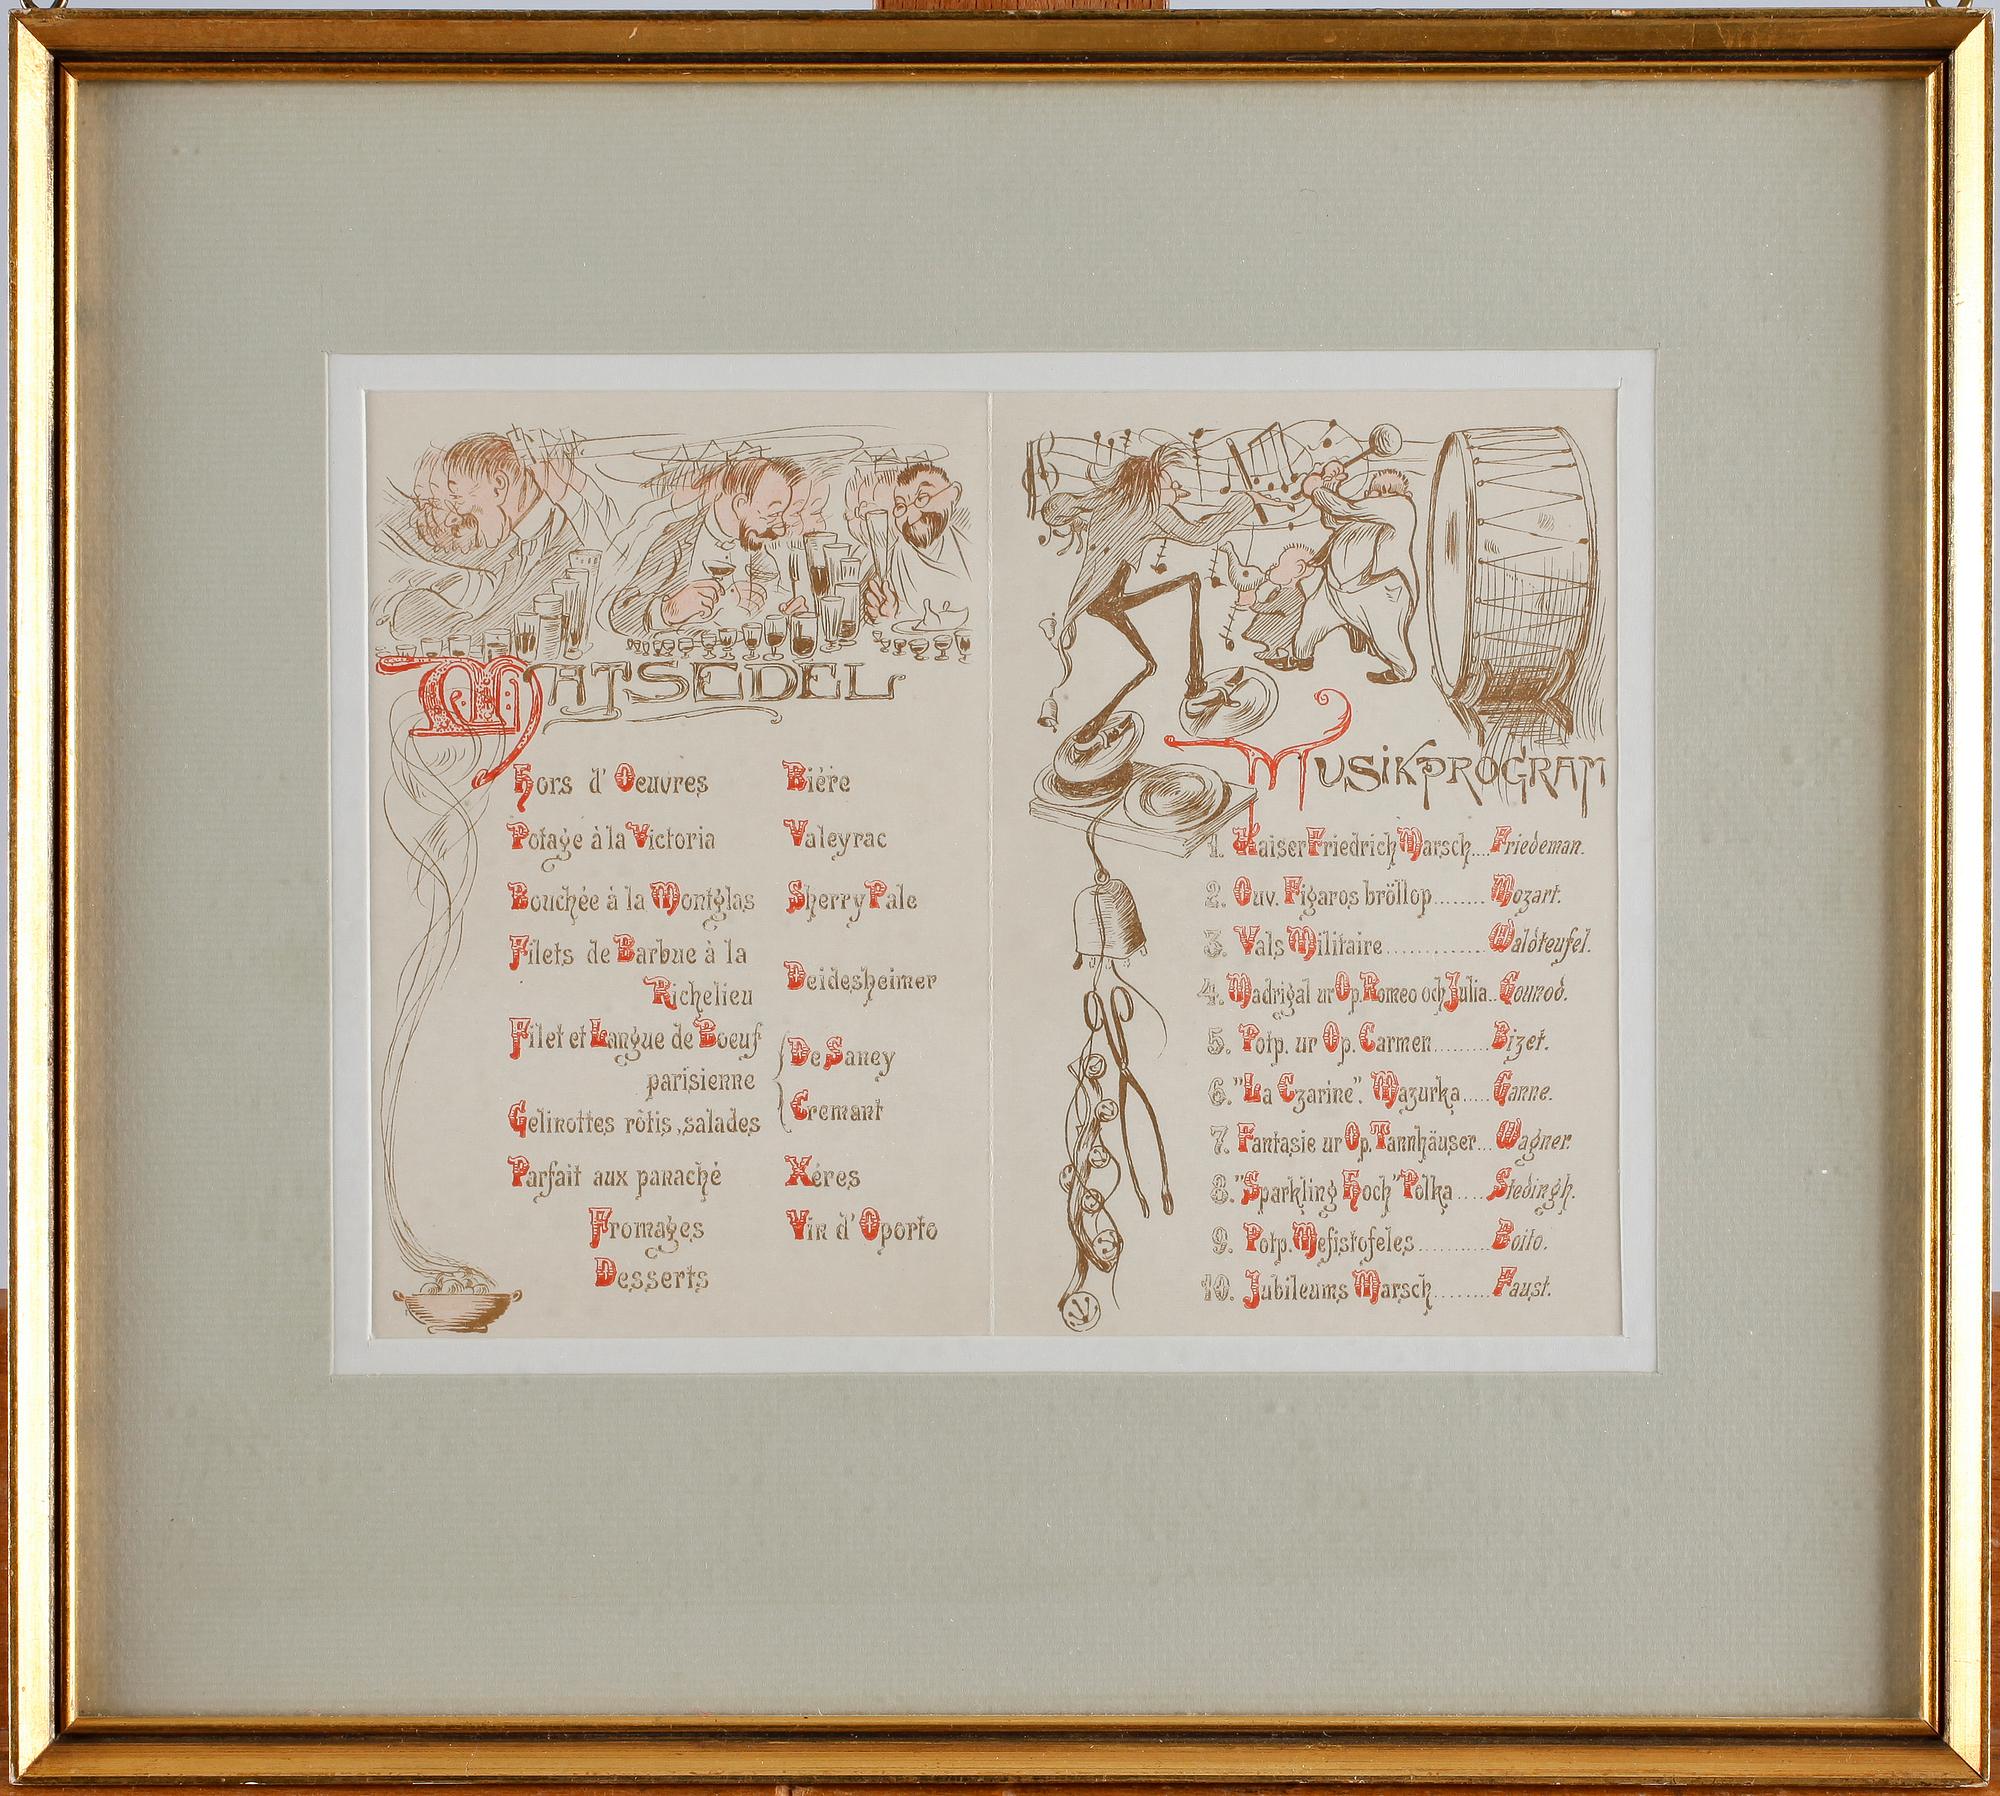 MATSEDEL
Hors d' Oeuvres
Potage à la Victoria
Bouchée à la Montglas
Filets de Barbue à la
Richelieu
Filet et Langue de Boeuf
parisienne
Gelinottes rôtis, salades
Parfait aux panaché
Fromages
Desserts
Biére
Valeyrac
Sherry Pale
Deidesheimer
De Saney
Cremant
Xéres
Vin d' Oporto
MUSIKPROGRAM
1. Kaiser Friedrich Marsch.... Friedeman.
2. Ouv. Figaros bröllop........ Mozart.
3. Vals Militaire............. Waldteufel.
4. Madrigal ur Op. Romeo och Julia.. Gounod.
5. Potp. ur Op. Carmen......... Bizet.
6. "La Czarine". Mazurka..... Ganne.
7. Fantasie ur Op. Tannhäuser... Wagner.
8. "Sparkling Hoch" Polka .... Stedingh.
9. Potp. Mefistofeles.......... Boito.
10. Jubileums Marsch........ Faust.